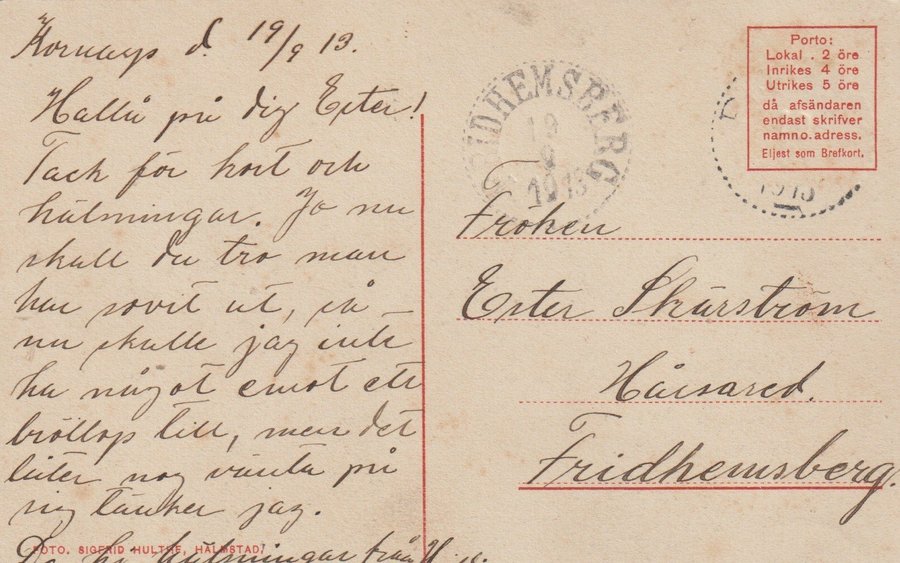 d. 19/9 13.
Hallå på dig Ester!
Tack för kort och
hälsningar. Ja nu
skall du tro man
har sovit ut, så
nu skulle jag inte
ha något emot ett
bröllop till, men det
låter nog vänta på
sig tänker jag.
hälsningar från
FOTO. SIGFRID HULTHE, HALMSTAD.
FRIDHEMSBERG
19
9
1913
Porto:
Lokal . 2 öre
Inrikes 4 öre
Utrikes 5 öre
då afsändaren
endast skrifver
namn o. adress.
Eljest som Brefkort.
1913
Fröken
Ester Skärström
Fridhemsberg.